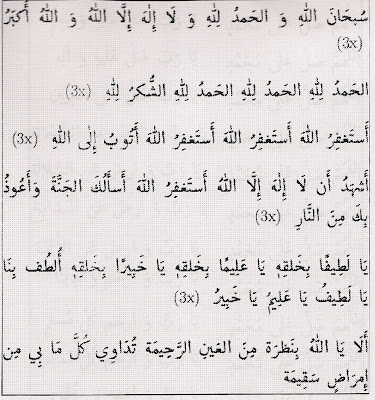 سُبحَانَ اللهِ وَ الحَمدُ لِلهِ وَ لَا إِلٰهَ إِلَّا اللهُ وَ اللهُ أَكبَرُ
(3x)
الحَمدُ لِلهِ الحَمدُ لِلهِ الحَمدُ لِلهِ الشُّكرُ لِلهِ (3x)
أَستَغفِرُ اللهَ أَستَغفِرُ اللهَ أَستَغفِرُ اللهَ أَتُوبُ إِلٰى اللهِ (3x)
أَشهَدُ أَن لَا إِلٰهَ إِلَّا اللهُ أَستَغفِرُ اللهَ أَسأَلُكَ الجَنَّةَ وَأَعُوذُ
بِكَ مِنَ النَّارِ (3x)
يَا لَطِيفًا بِخَلقِهِ يَا عَلِيمًا بِخَلقِهِ يَا خَبِيرًا بِخَلقِهِ أُلطُف بِنَا
يَا لَطِيفُ يَا عَلِيمُ يَا خَبِيرُ (3x)
أَلَا يَا اللهُ بِنَظرَة مِنَ العَينِ الرَّحِيمَة تُدَاوِي كُلَّ مَا بِي مِن
إِمرَاضٍ سَقِيمَة